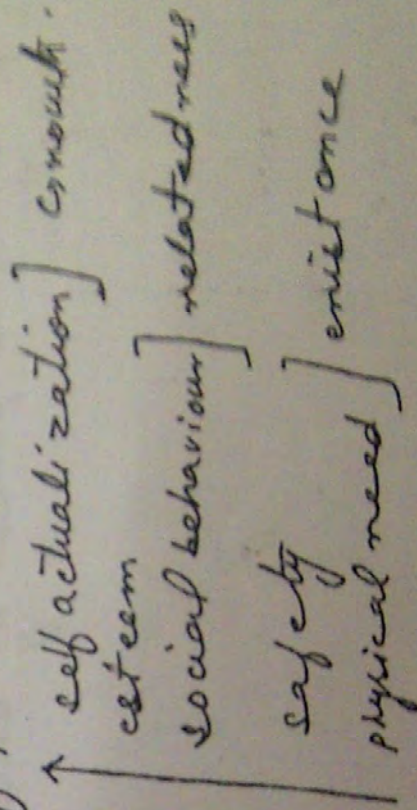 self actualization] Growth.
esteem
social behaviour] relatedness
safety
physical need] existance